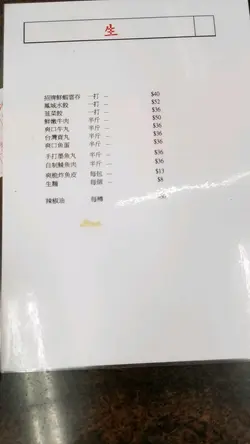 生
招牌鮮蝦雲吞 一打 – $40
鳳城水餃 一打 – $52
韮菜餃 一打 – $36
鮮嫩牛肉 半斤 – $50
爽口牛丸 半斤 – $36
台灣貢丸 半斤 – $36
爽口魚蛋 半斤 – $36
手打墨魚丸 半斤 – $36
自制鯪魚肉 半斤 – $36
爽脆炸魚皮 每包 – $13
生麵 每個 – $8
辣椒油 每樽 –